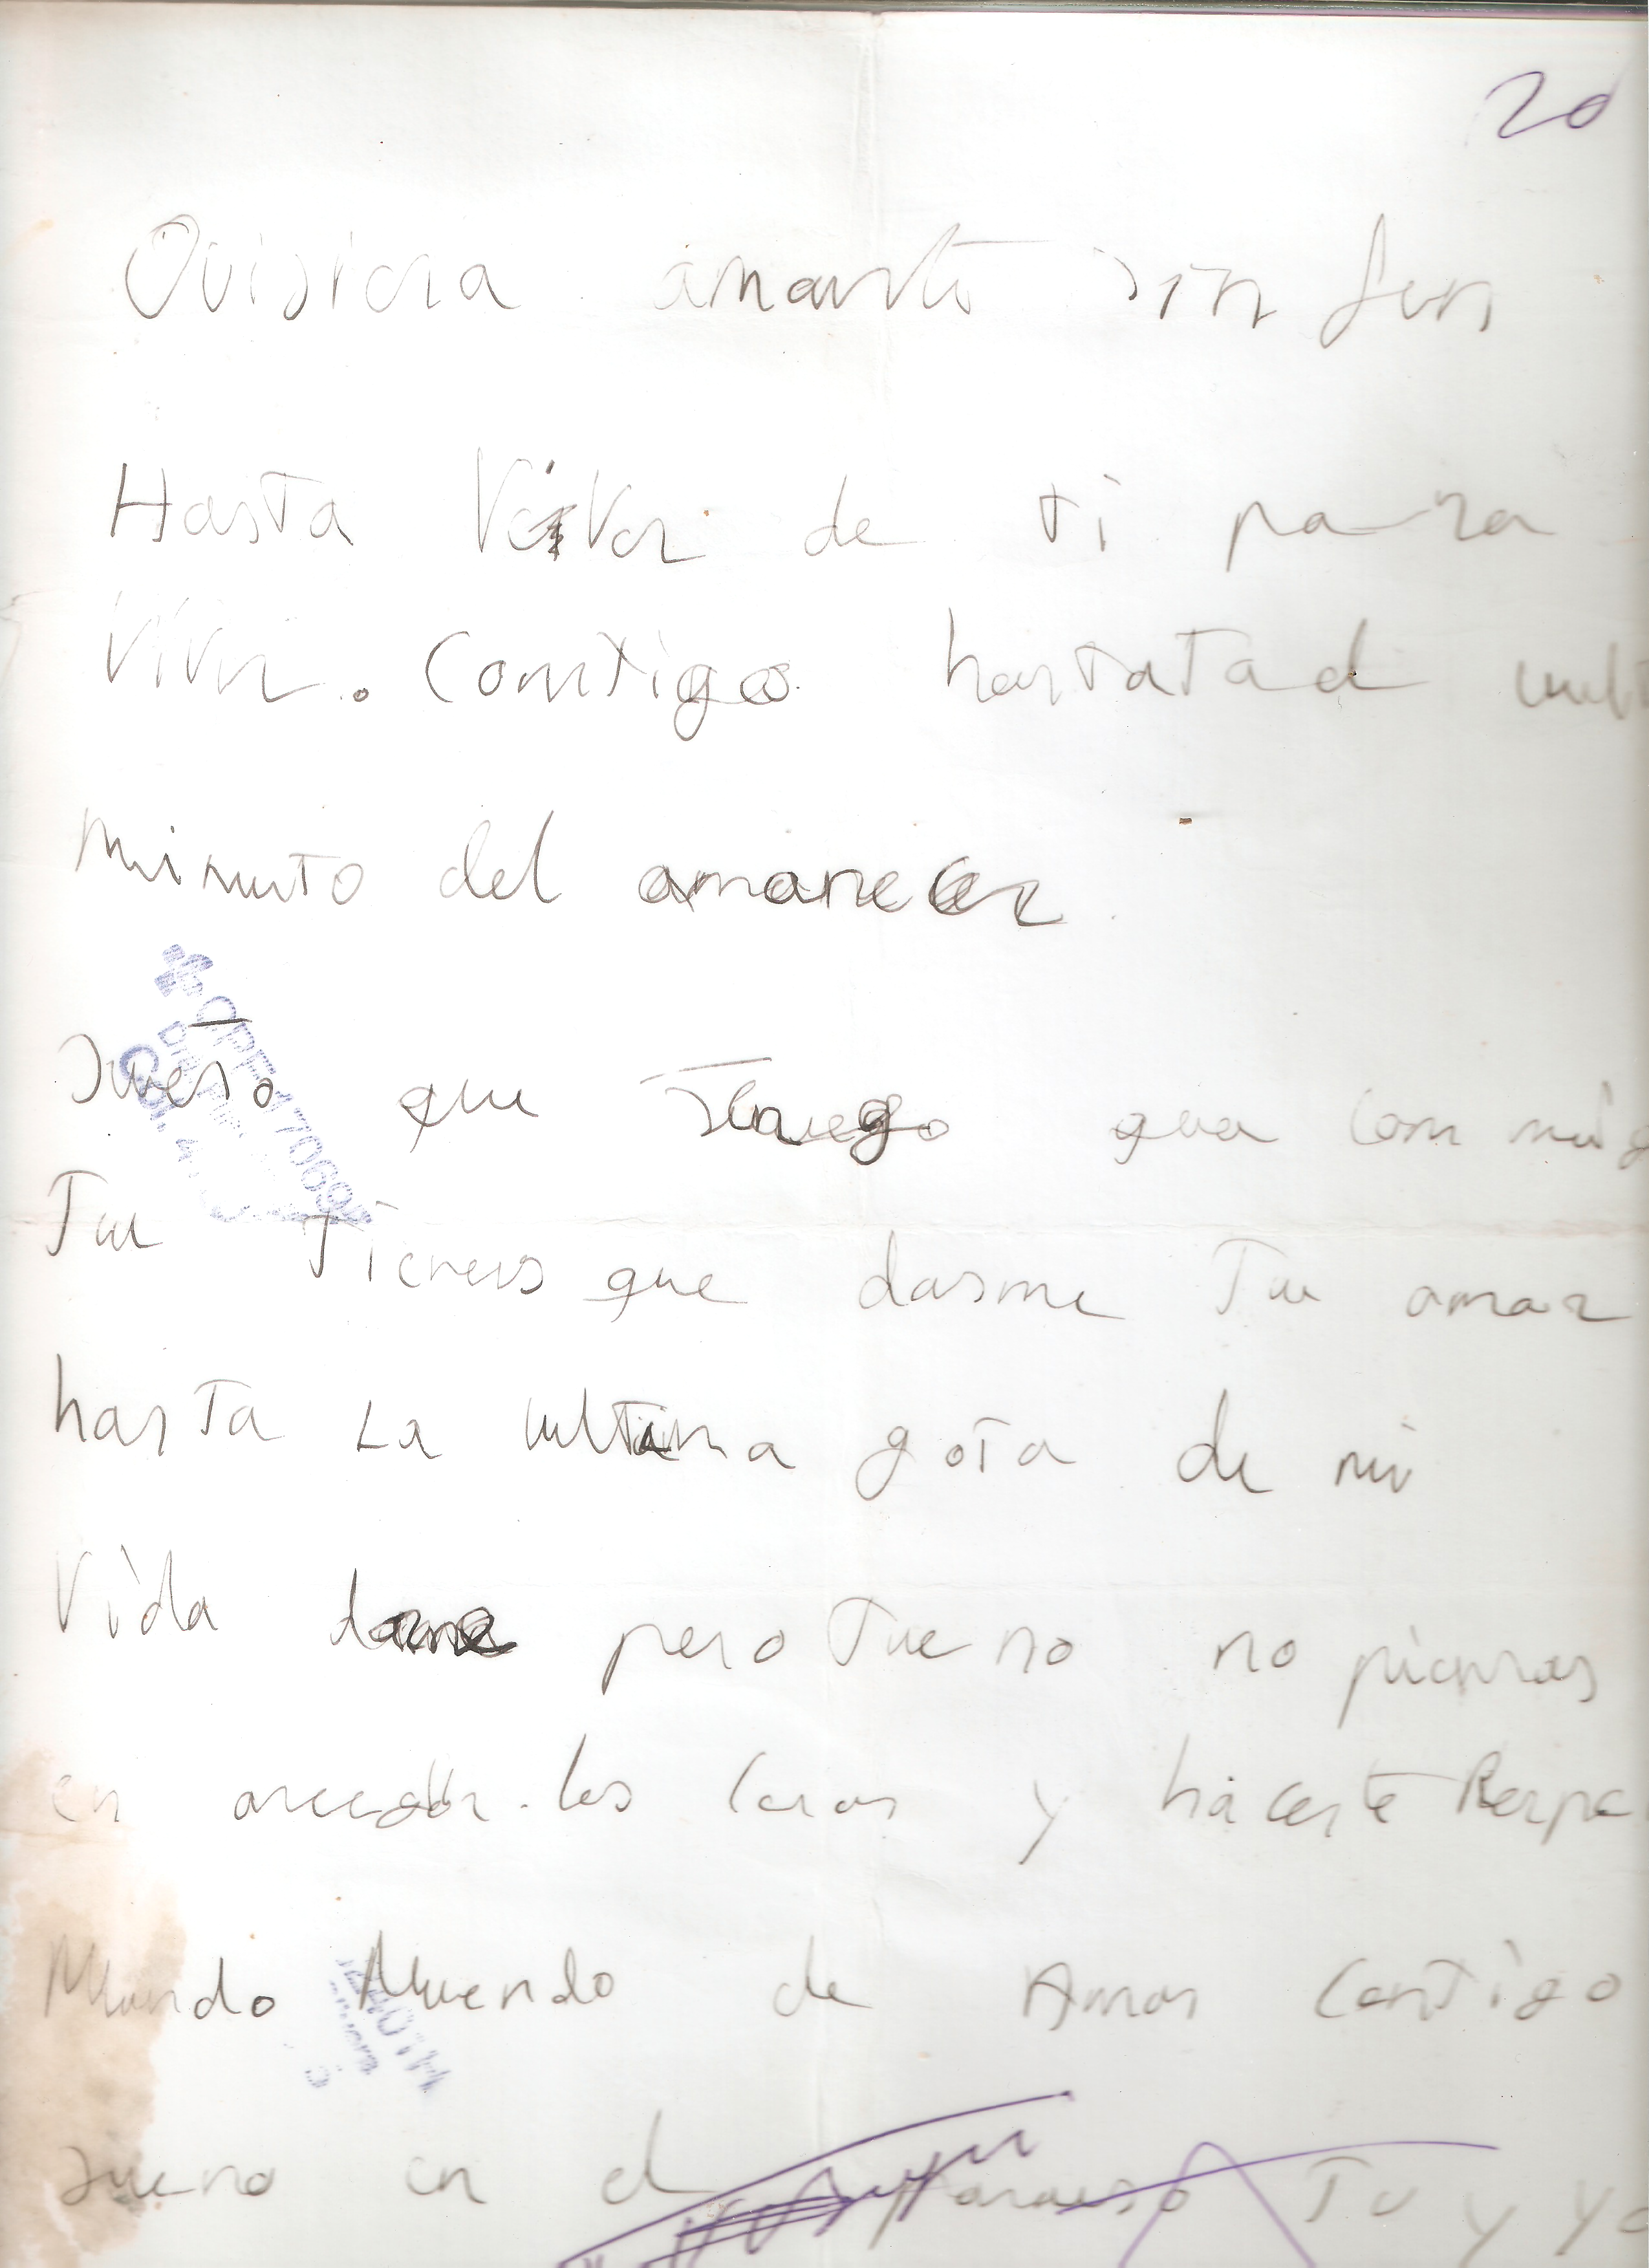 20
Quisiera amarte sin fin
Hasta Vivir de ti para
Vivir. Contigo hastatael
minuto del amanecer
Sueño que Tengo que con mig
Tu Tienes que darme Tu amar
hasta La ultima gota de mi
Vida pero Tu no no pienses
en las cosas y hacerte
Mundo Muendo de Amor Contigo
sueno en el paraiso Tu y yo